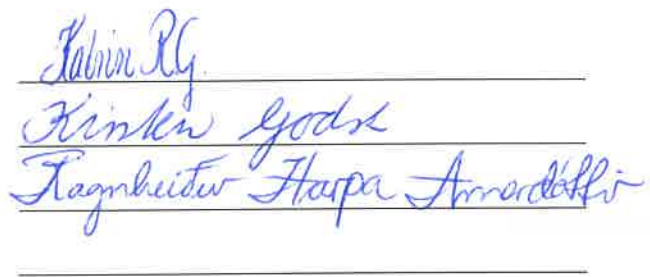 Katrin R.G.
Kirsten Godsk
Ragnheiður Harpa Arnardóttir